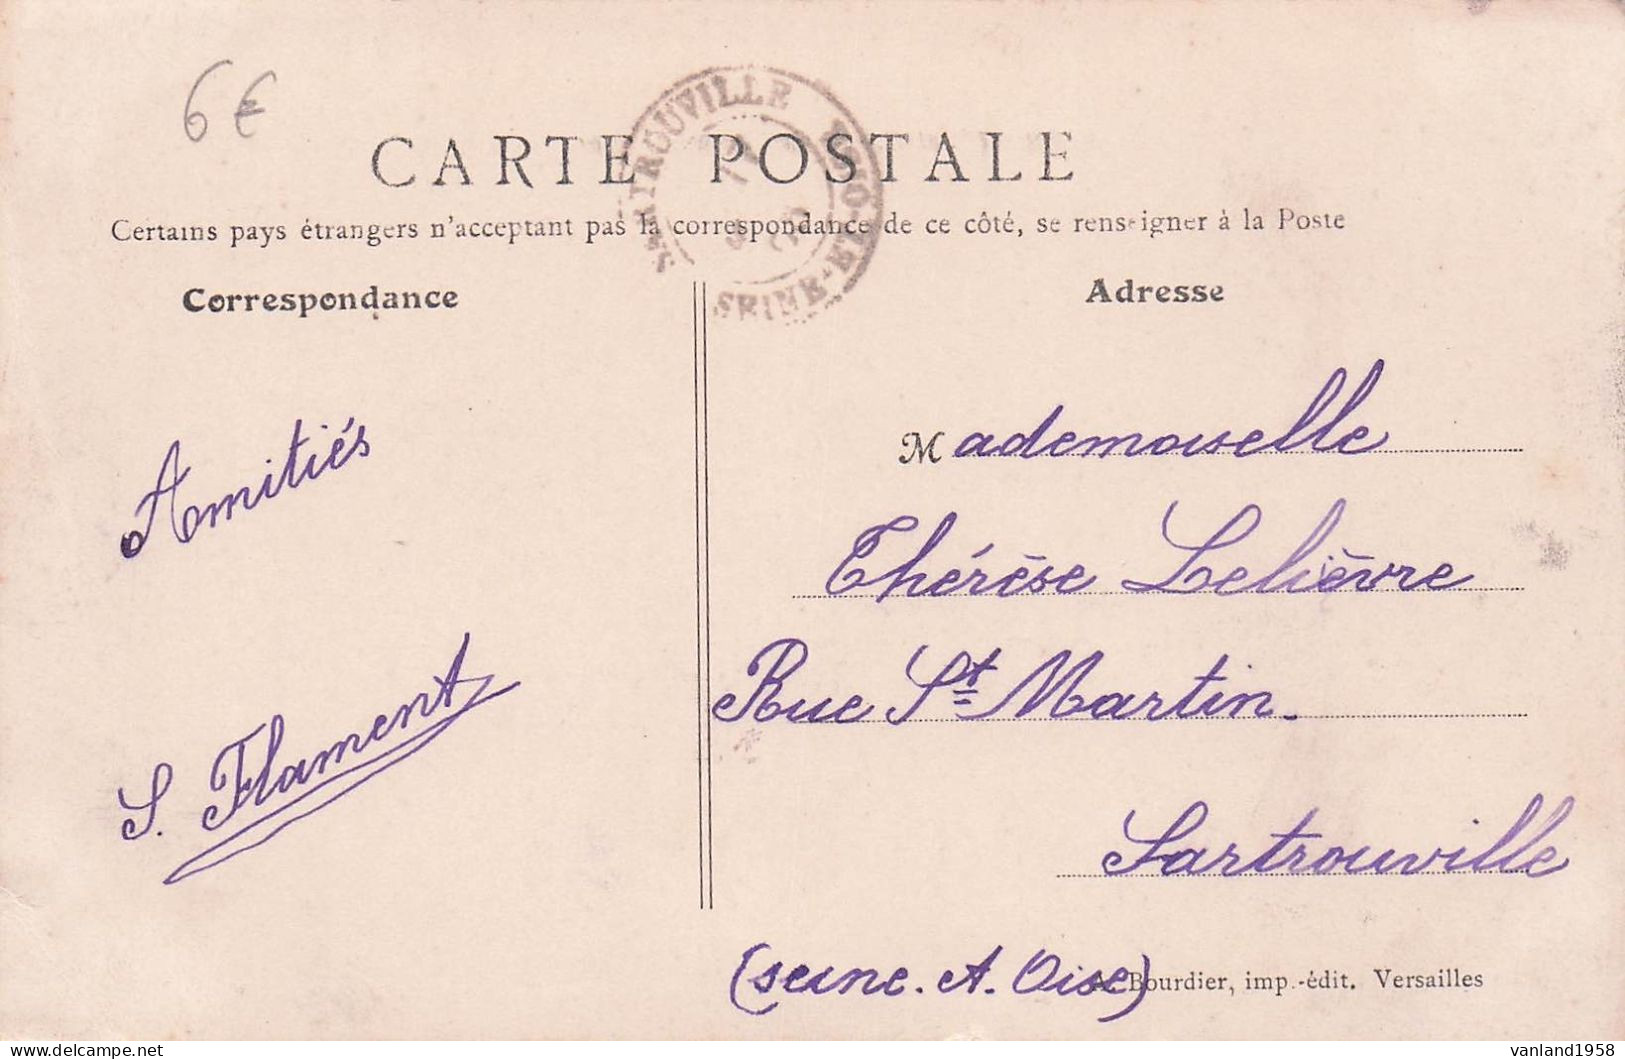 6 €
CARTE POSTALE
SARTROUVILLE
SEINE-ET-OISE
Certains pays étrangers n'acceptant pas la correspondance de ce côté, se renseigner à la Poste
Correspondance
Adresse
Amitiés
S. Flament
Mademoiselle
Thérèse Lelièvre
Rue St Martin.
Sartrouville
(Seine. A. Oise)
Bourdier, imp.-édit. Versailles
vanland1958